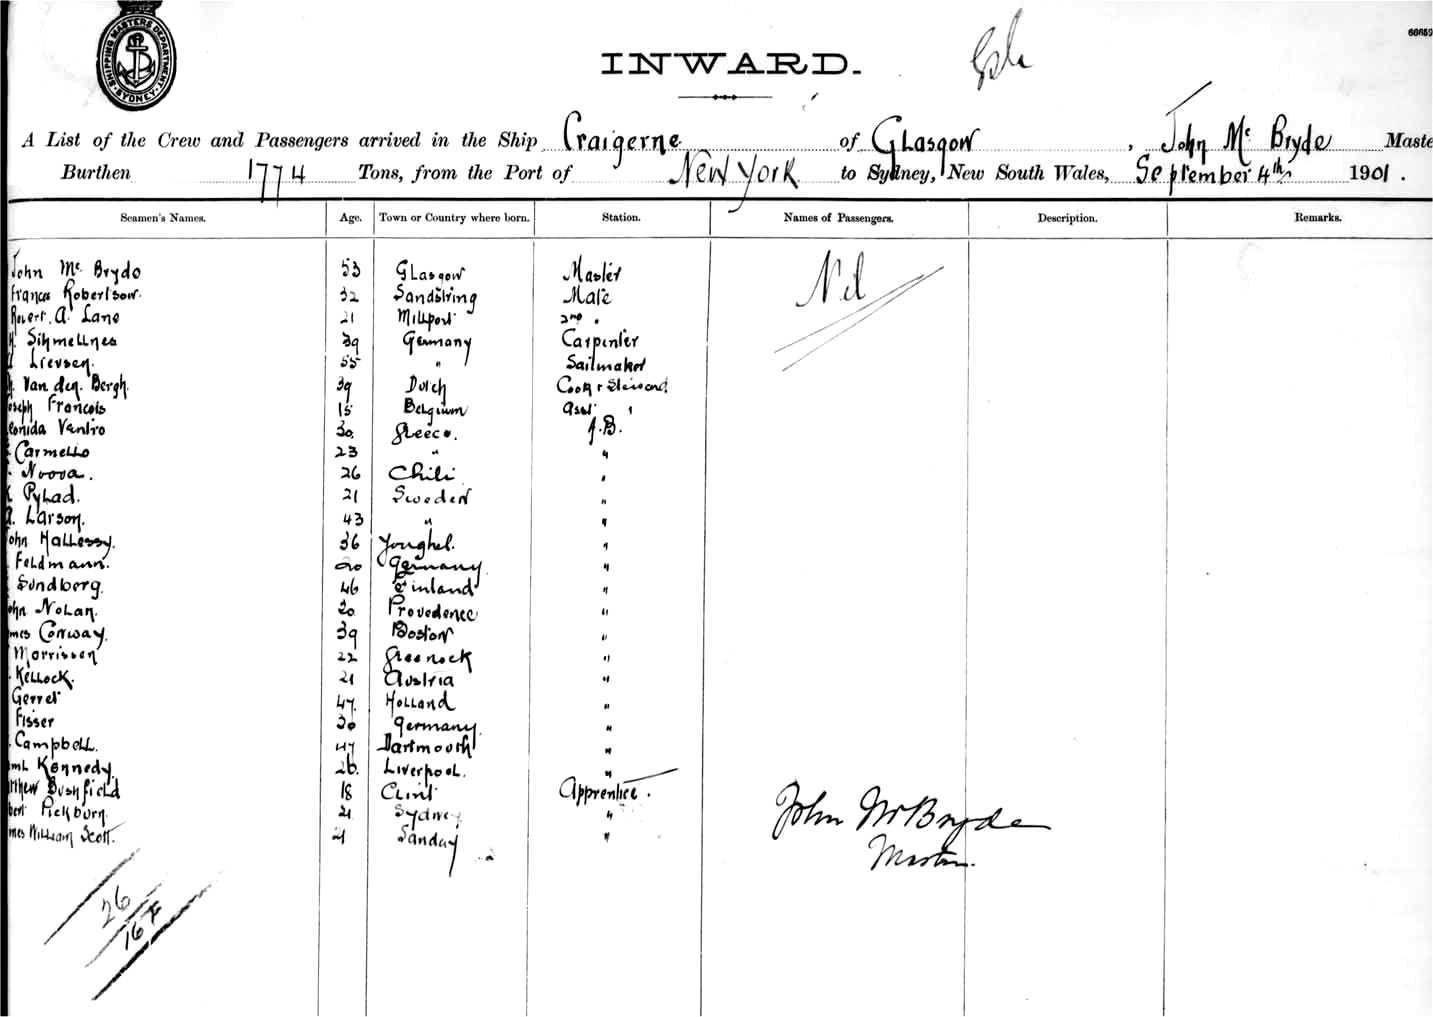 SHIPPING MASTERS DEPARTMENT
SYDNEY
60659
INWARD.
A List of the Crew and Passengers arrived in the Ship Craigerne of Glasgow, John Mc Bryde Maste
Burthen 1774 Tons, from the Port of New York to Sydney, New South Wales, September 4th 1901.
Seamen's Names. Age. Town or Country where born. Station. Names of Passengers. Description. Remarks.
John Mc Bryde 53 Glasgow Master Nil
Francis Robertson. 32 Mate
Robert. A. Lane 21 Millport 2nd "
39 Germany Carpenter
Lievsen. 55 " Sailmaker
Van den Bergh. 39 Dutch Cook & Steward
oseph Francois 15 Belgium Asst "
eonida Ventro 30. Greece. A.B.
Carmello 23 " "
Noova. 26 Chili "
Pylad. 21 Sweden "
Larson. 43 " "
ohn Hallessy. 36 Youghel. "
Feldmann. 20 Germany "
Sundberg. 46 Finland "
ohn Nolan. 20 Provedence "
mes Conway. 39 Boston "
Morrissen 22 Greenock "
Kellock. 21 Austria "
Gerret 47. Holland "
Fisser 30 Germany "
Campbell. 47 Dartmouth "
Kennedy. 26. Liverpool. "
thew Bushfield 18 Clint Apprentice.
bert Pickburn 21 Sydney "
mes William Scott. 21 Sanday "
John McBryde
Master.
26